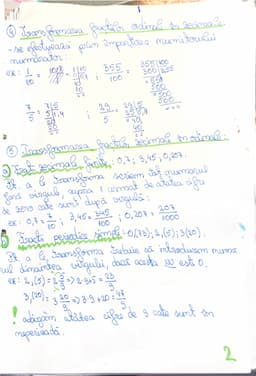 ④ Transformarea fracției ordinare în zecimale
- se efectuează prin împărțirea numitorului
numărător:
ex: 1/10 = ; 355/100 =
7/5 = ; 29/5 =
Transformarea fracției zecimale în ordinare:
a) Fracții zecimale finite: 0,7; 3,45; 0,207.
Pt a le transforma scriem tot numărul
fără virgulă, supra 1 urmat de atâtea cifre
de zero câte sunt după virgulă:
ex: 0,7 = 7/10; 3,45 = 345/100; 0,207 = 207/1000
Fracții periodice simple: 0,(73); 2,(5); 3,(20).
Pt a le transforma trebuie să introducem numa
rul dinaintea virgulei, dacă acesta nu este 0.
ex: 2,(5) = 2 5/9 = 23/9
3,(20) =
! adăugăm atâtea cifre de 9 câte sunt în
perioadă.
2